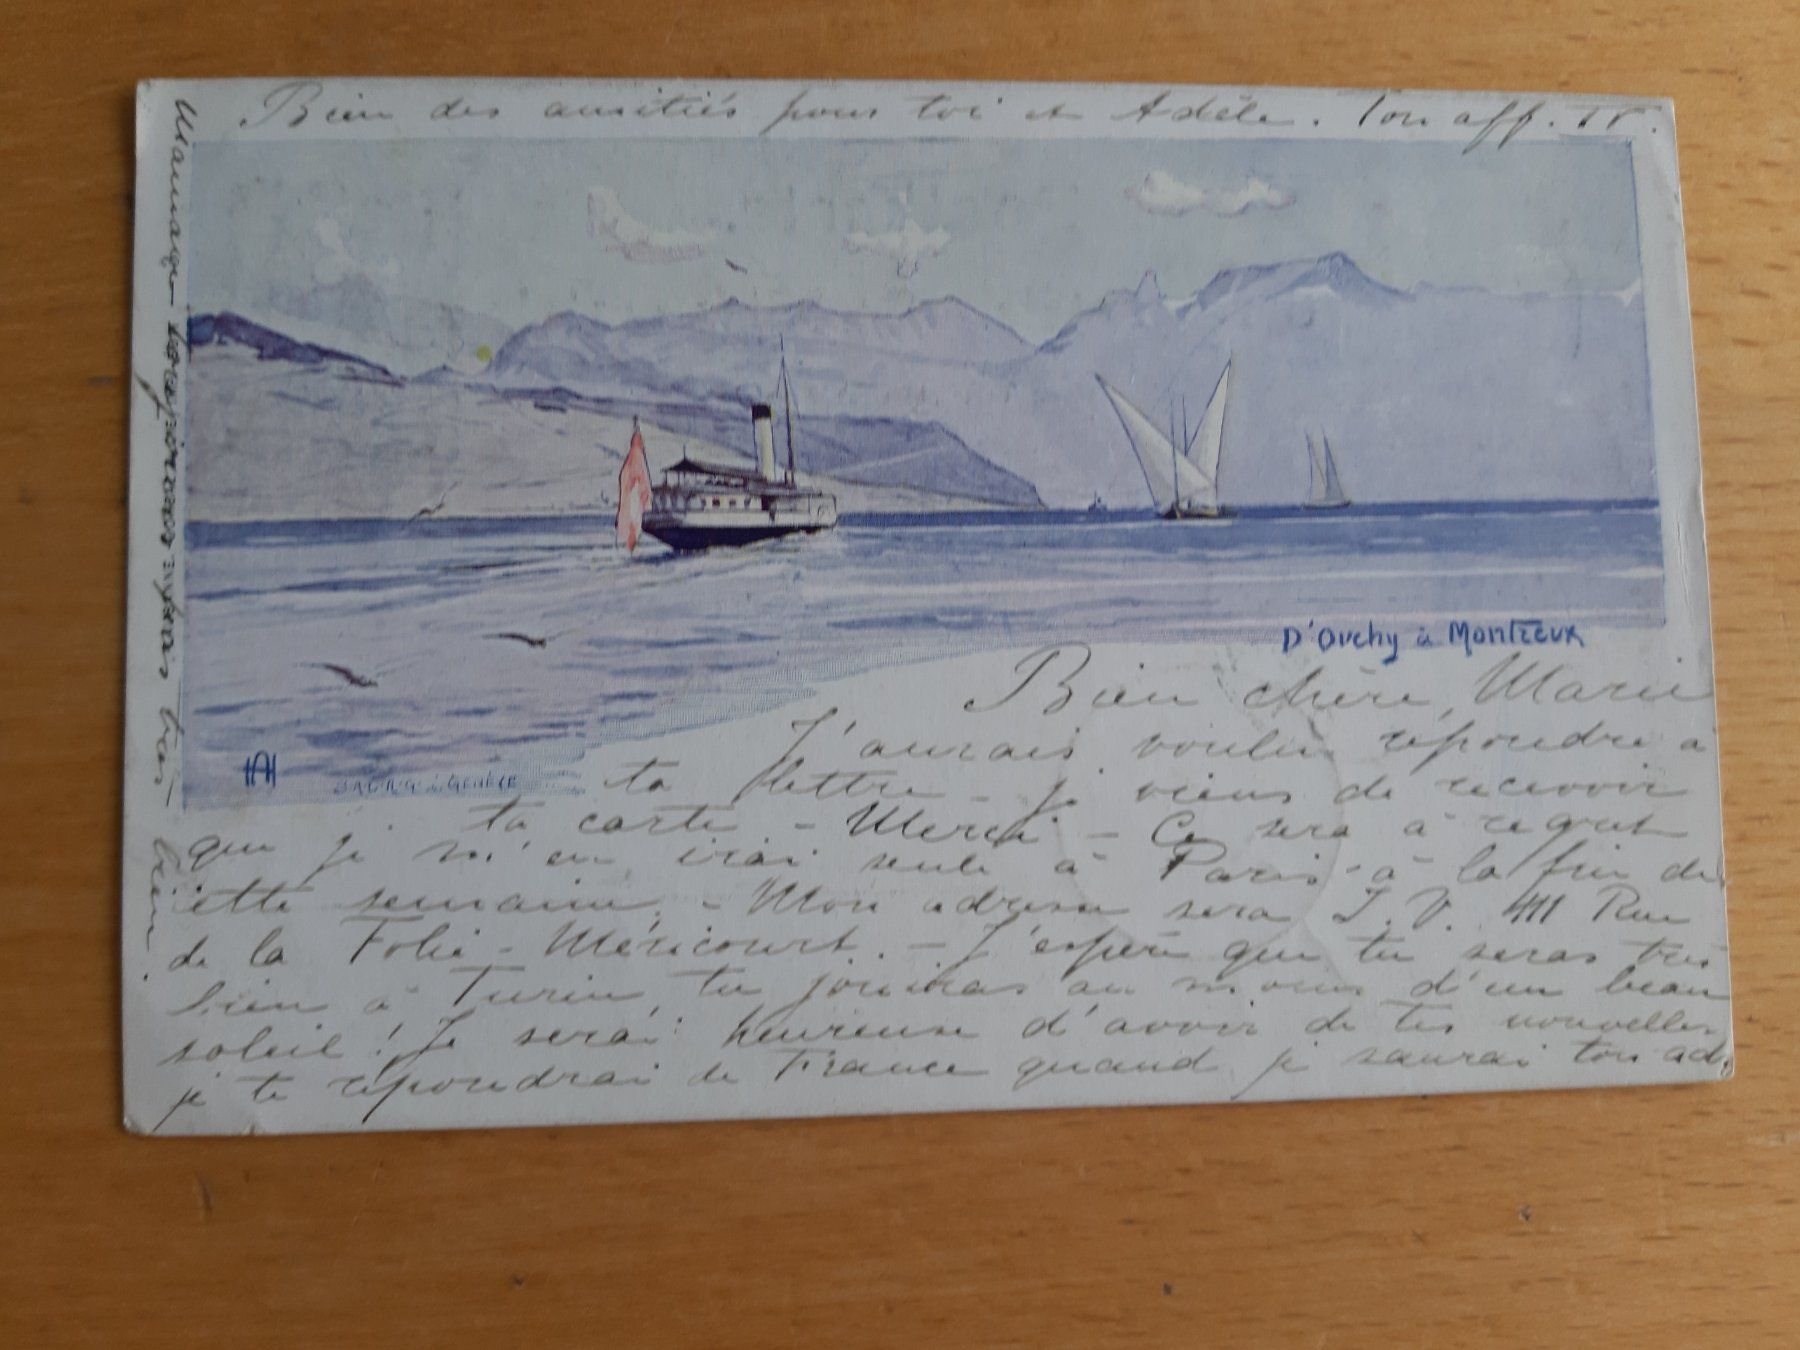 Bien des amitiés pour toi et Adèle. Ton aff. IV.
D'Ouchy à Montreux
AH
Bien chère Marie
J'aurais voulu répondre à
ta lettre - je viens de recevoir
ta carte - Merci - Ce sera à regret
que je m'en irai seule à Paris à la fin de
cette semaine. - Mon adresse sera J. V. 411 Rue
de la Folie - Méricourt. - J'espère que tu seras très
bien à Turin, tu jouiras au moins d'un beau
soleil! Je serai heureuse d'avoir de tes nouvelles
je te répondrai de France quand je saurai ton ad.
Maman très bien.